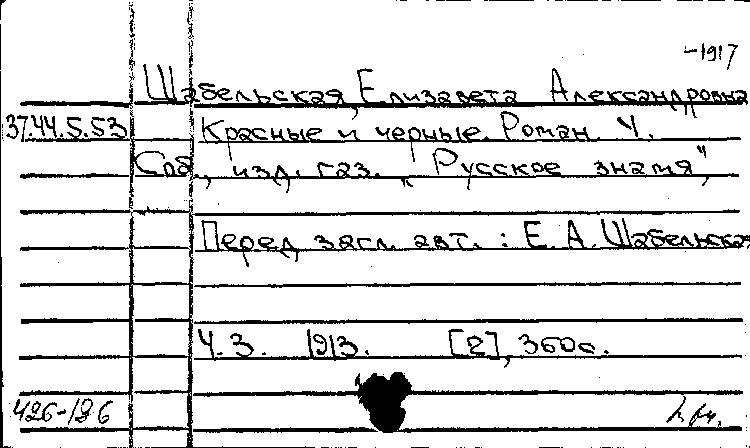 -1917
Шабельская, Елизавета Александровна
37.44.5.53 Красные и черные. Роман. Ч.
Спб., изд. газ. „Русское знамя",
Перед загл. авт.: Е. А. Шабельская
Ч. 3. 1913. [2], 360с.
426-126